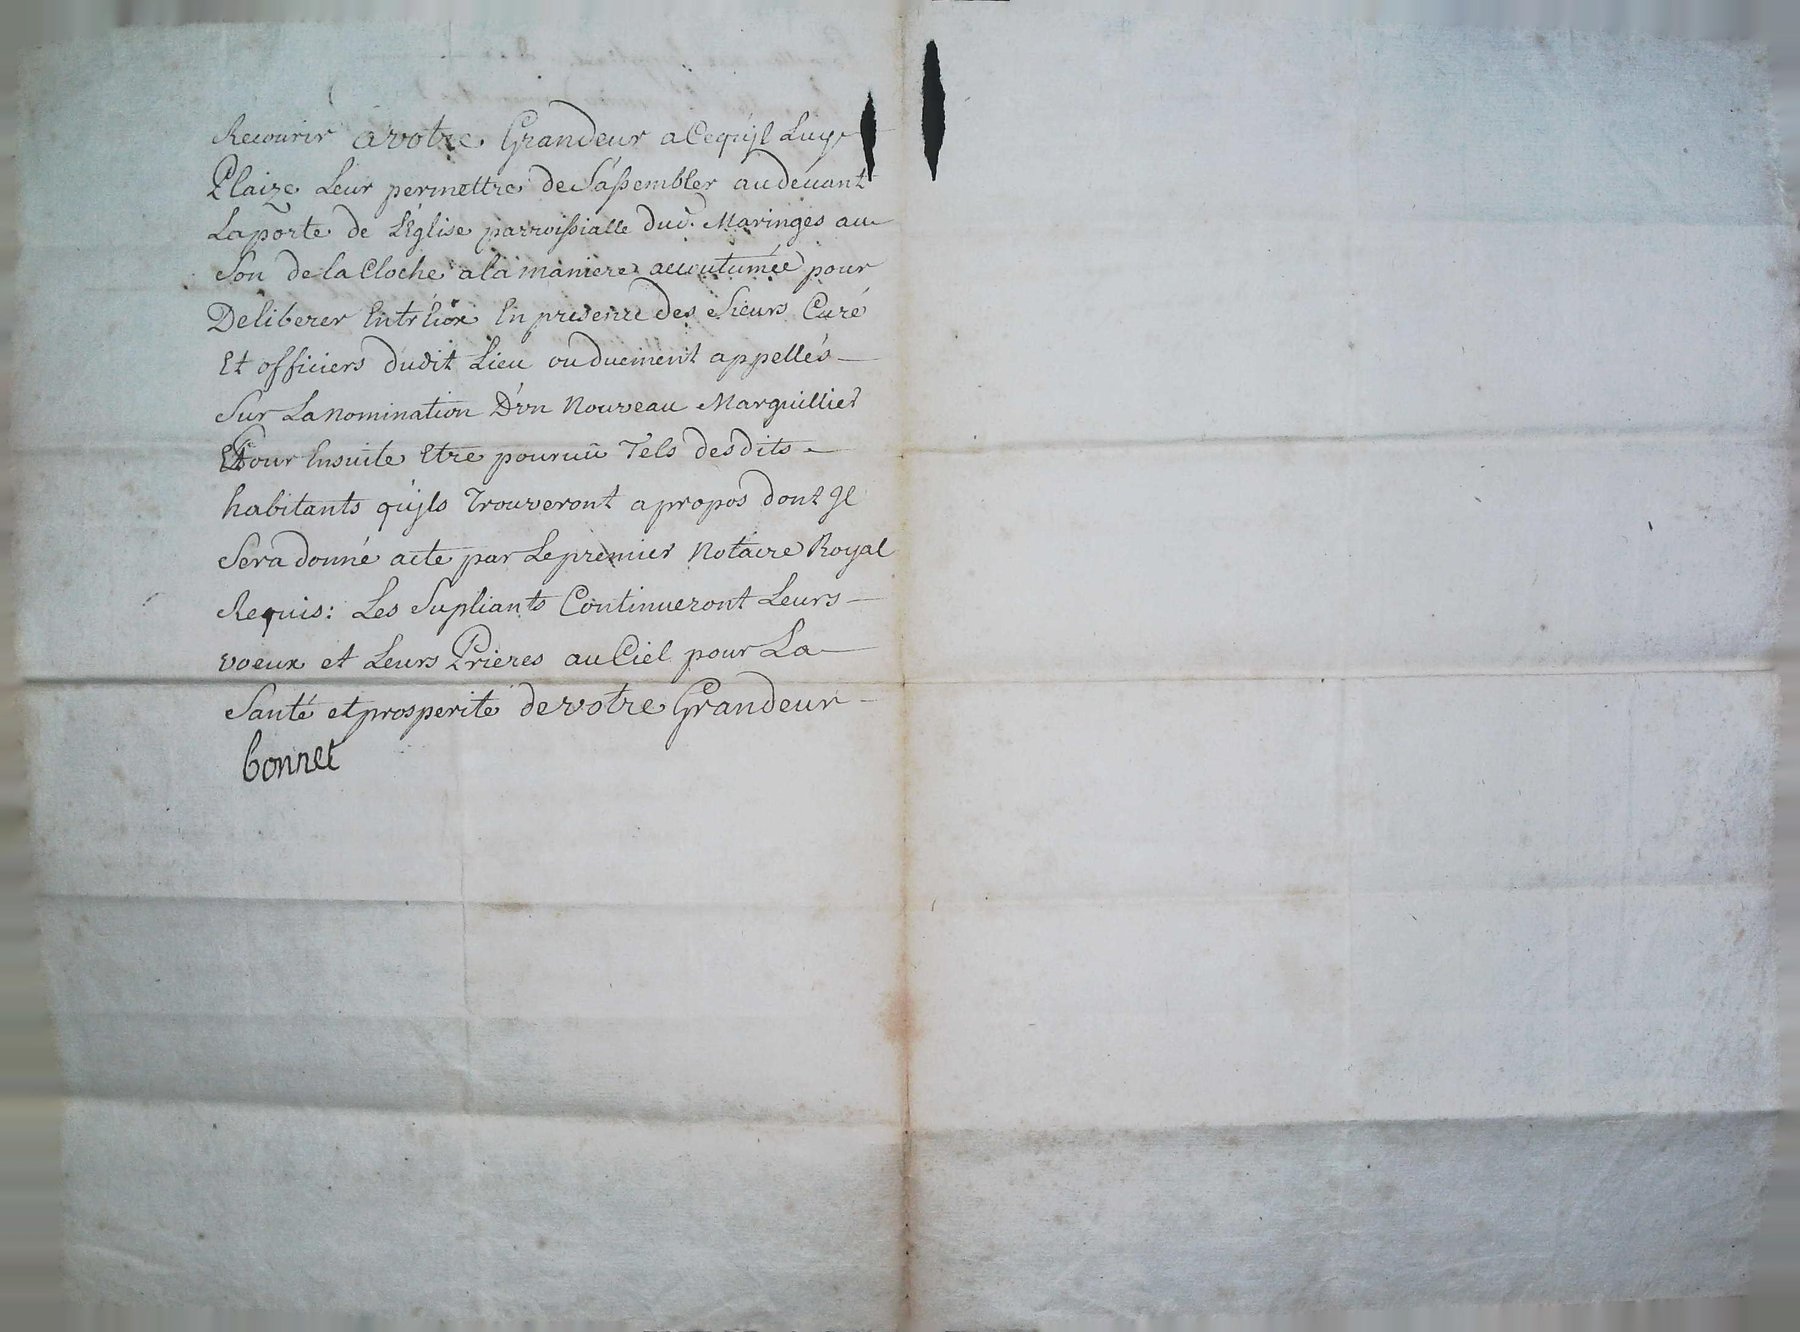 Recourir a votre Grandeur a Cequ'jl Luy
Plaize Leur permettre de S'assembler audevant
Laporte de L'Eglise parroissialle dud. Maringes au
Son de la Cloche a la maniere accoutumée pour
Deliberer Entr'Eux En presence des Sieurs Curé
Et officiers dudit Lieu ou duement appellés
Sur La nomination D'vn Nouveau Marguillier
Pour Ensuite Etre pourvû Tels desdits
habitants qu'jls Trouveront a propos dont Jl
Sera donné acte par Le premier Notaire Royal
Requis: Les Supliants Continueront Leurs
voeux et Leurs Prieres au Ciel pour La
Santé et prosperité de votre Grandeur
bonnet